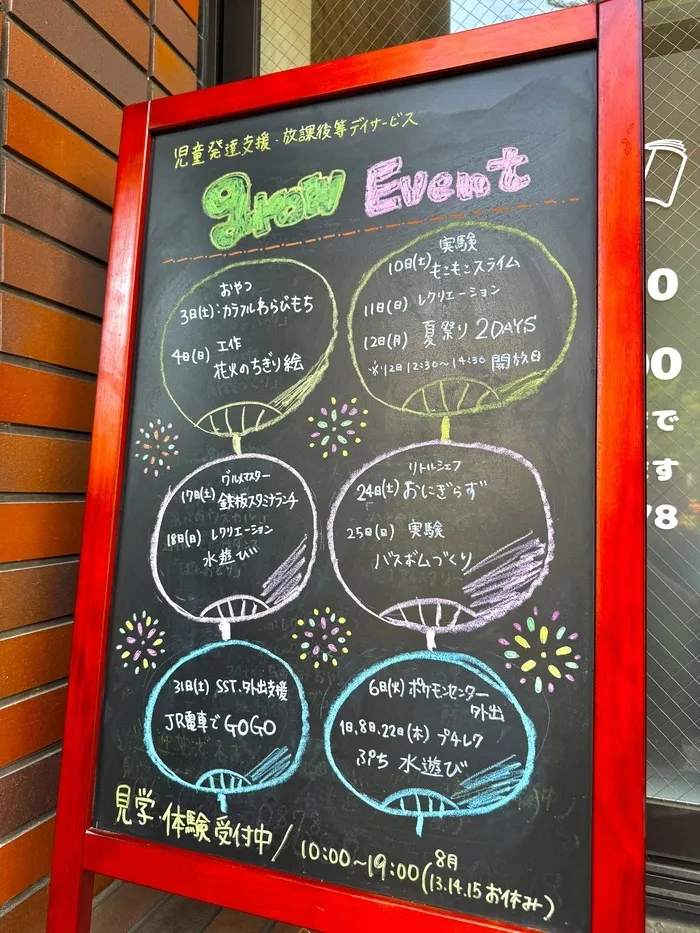 児童発達支援・放課後等デイサービス
grow Event
おやつ
3日(土):カラフルわらびもち
4日(日) 工作
花火のちぎり絵
10日(土) 実験
もこもこスライム
11日(日) レクリエーション
12日(月) 夏祭り 2DAYS
※12日 12:30〜14:30 開放日
グルメマスター
17日(土) 鉄板スタミナランチ
18日(日) レクリエーション
水遊び
リトルシェフ
24日(土) おにぎらず
25日(日) 実験
バスボムづくり
31日(土) SST.外出支援
JR電車でGOGO
6日(火) ポケモンセンター
外出
1日,8日,22日(木) プチレク
水遊び
見学・体験受付中/ 10:00〜19:00(8月
13.14.15お休み)
0
00
で
す
78